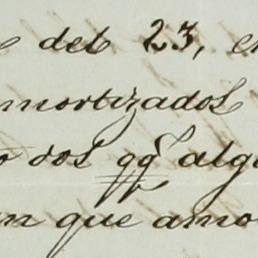 e deb 23, e
mortizados
o dos qq^ alg
m que amo